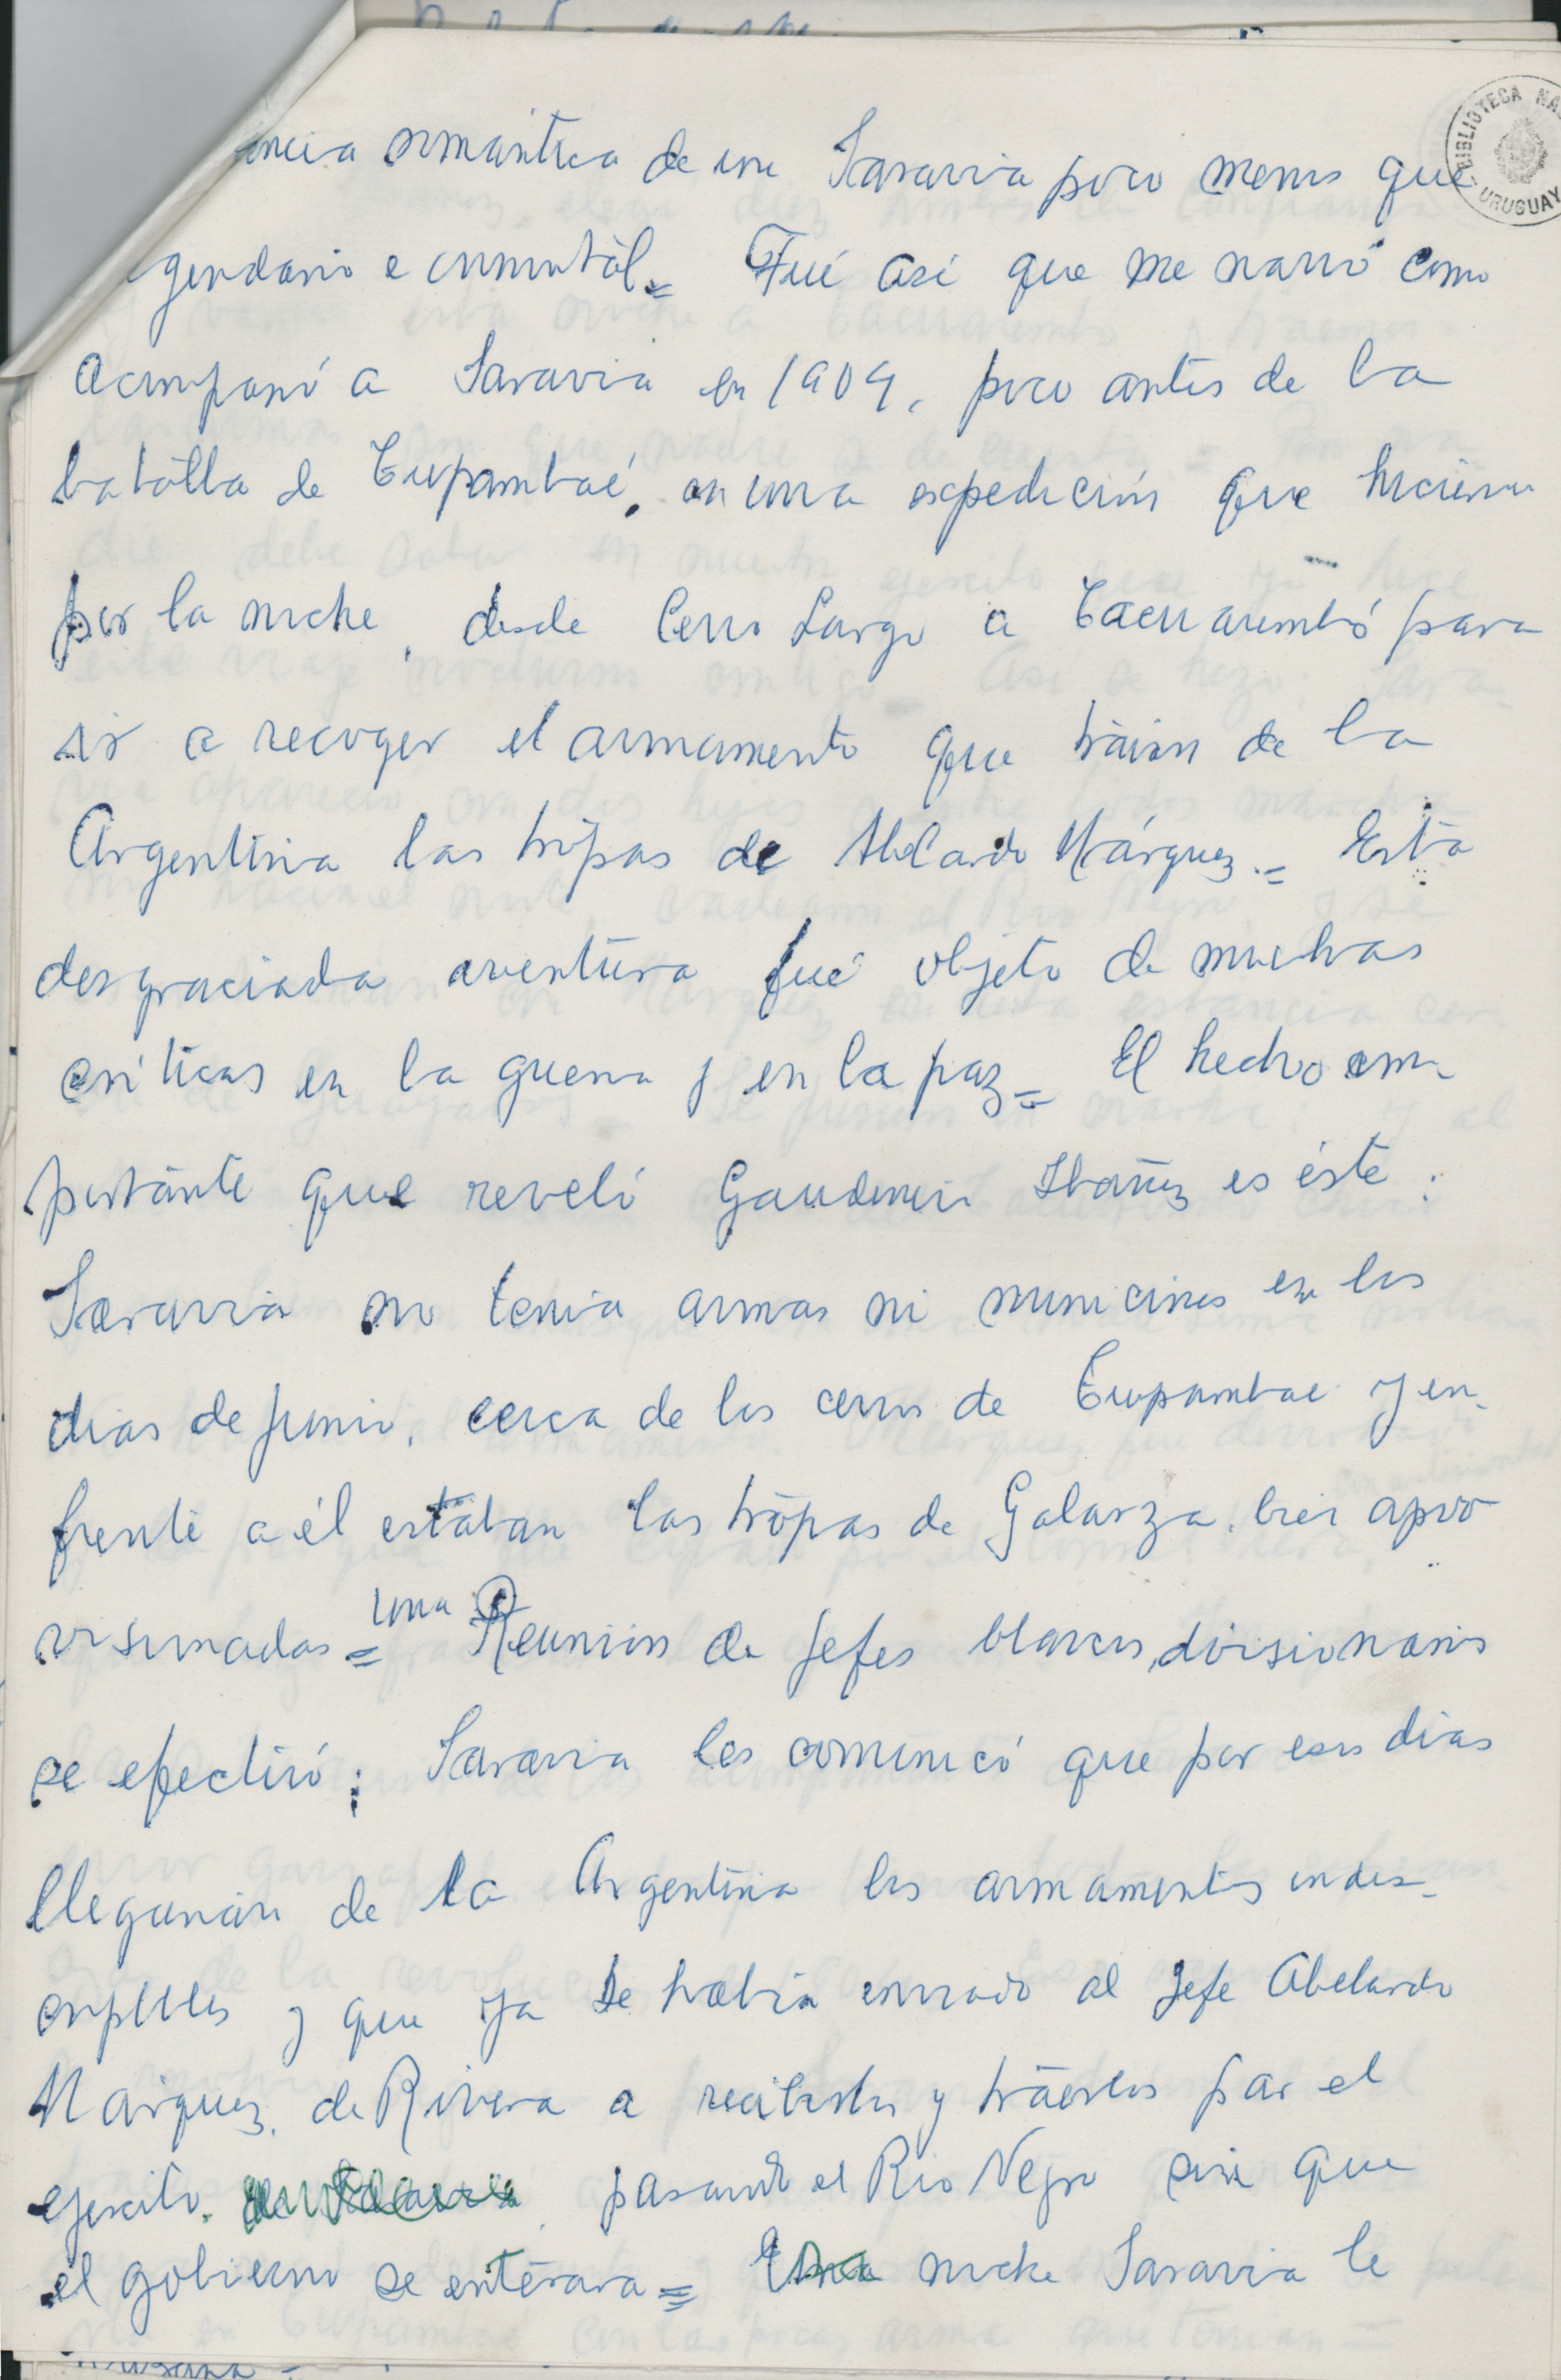 BIBLIOTECA NA
URUGUAY
encia romántica de un Saravia poco menos que
gendario e inmortal.= Fué así que me narró como
acompañó a Saravia en 1904, poco antes de la
batalla de Tupambaé, en una expedición que hicieron
por la noche, desde Cerro Largo a Tacuarembó para
ir a recoger el armamento que traían de la
Argentina las tropas de Abelardo Márquez.= Esta
desgraciada aventura fué objeto de muchas
críticas en la guerra y en la paz = El hecho im
portante que reveló Gaudencio Ibañez es éste:
Saravia no tenía armas ni municiones en los
dias de junio, cerca de los cerros de Tupambae y en-
frente a él estaban las tropas de Galarza, bien apro
visionadas = una Reunión de jefes blancos, divisionarios
se efectuó; Saravia les comunicó que por esos dias
llegarían de la Argentina los armamentos indis-
y que ya se había enviado al jefe Abelardo
Márquez, de Rivera a recibirlos y traerlos par el
ejercito, pasando el Rio Negro sin que
el gobierno se enterara = Una noche Saravia le